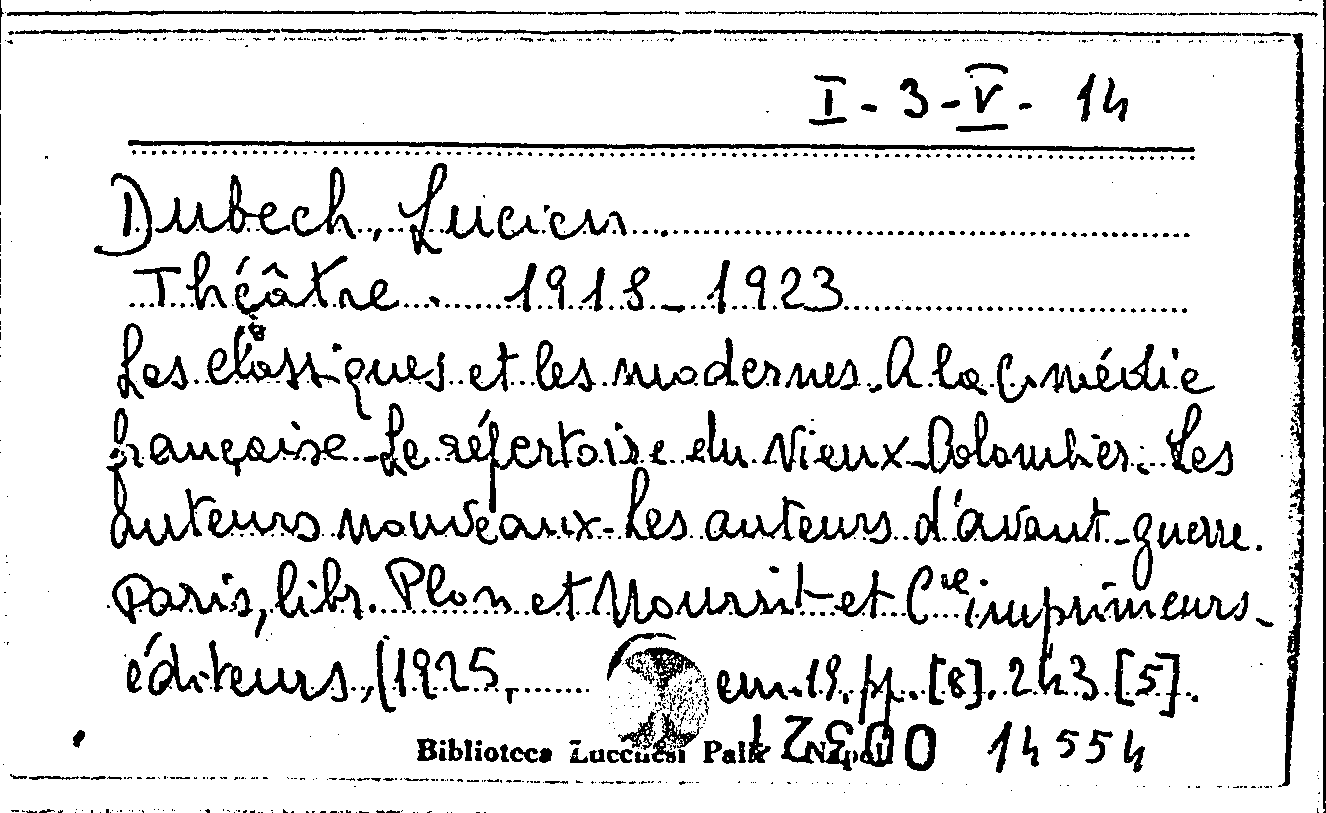 I - 3 - V - 14
Dubech, Lucien
Théâtre. 1918-1923
Les classiques et les modernes. A la Comédie
française - Le répertoire du Vieux-Colombier. Les
auteurs nouveaux - Les auteurs d'avant-guerre.
Paris, libr. Plon et Nourrit et Cie imprimeurs-
éditeurs, (1925, cm. 19. pp. [8]. 243 [5].
Biblioteca Lucchesi Palli Napoli 14554